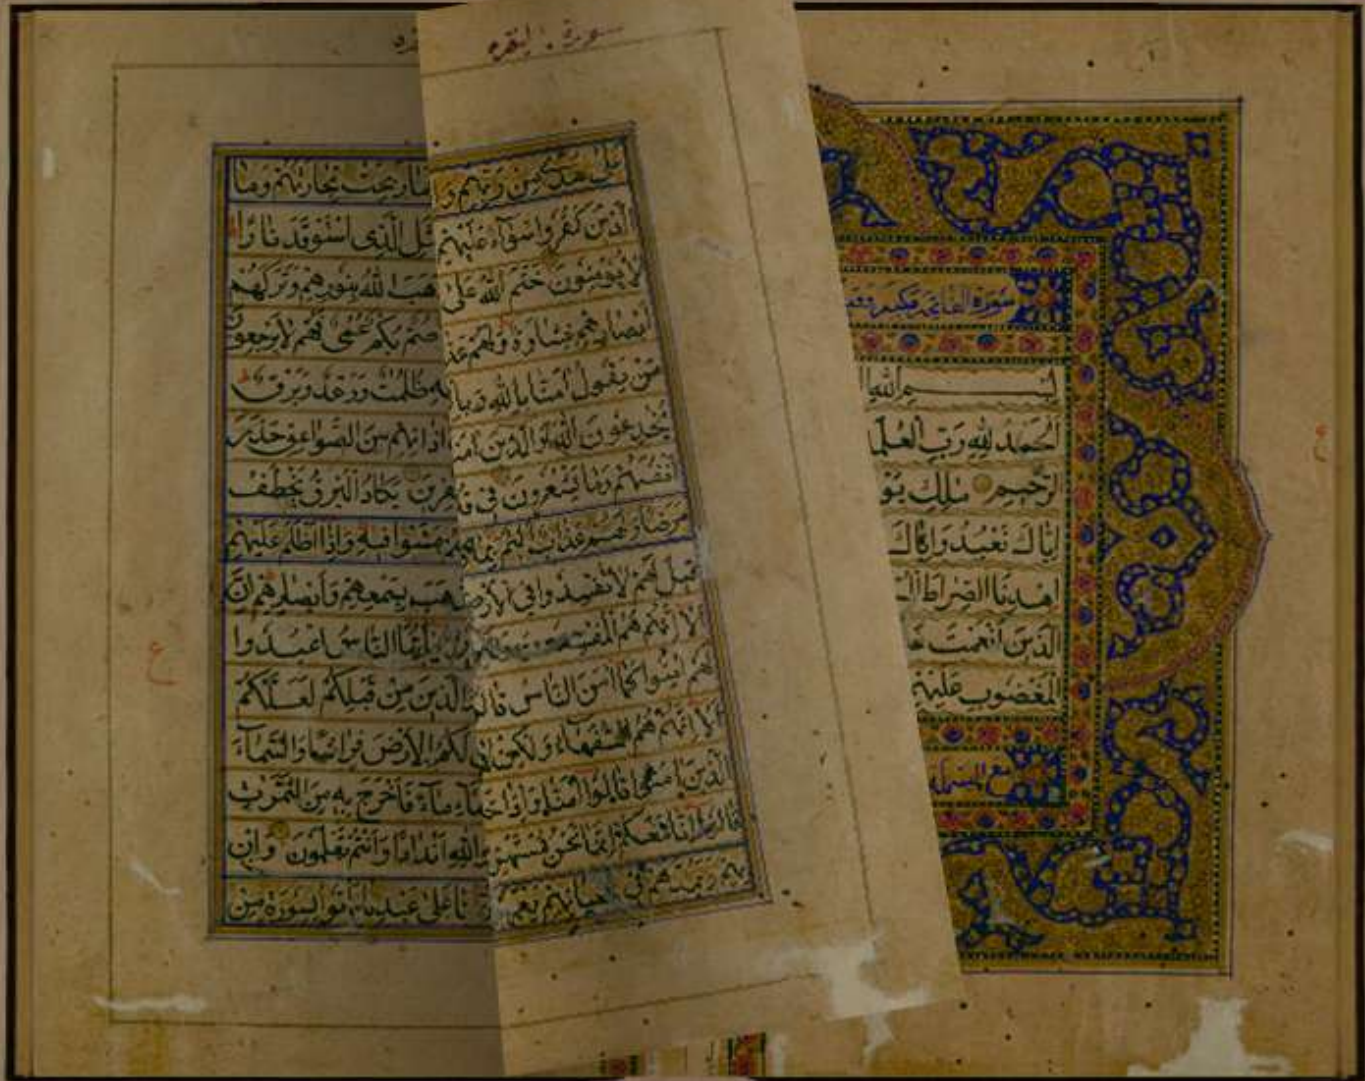 سورة الفاتحة مكية وهي
بسم الله ا
الحمد لله رب العلم
الرحيم ملك يو
اياك نعبد واياك
اهدنا الصراط المس
الذين انعمت ع
المغضوب عليهم
سورة البقره
على هدى من ربهم و
الذين كفروا سواء عليهم
لا يؤمنون ختم الله على
ابصارهم غشاوة ولهم عذ
من يقول امنا بالله وبا
يخدعون الله والذين ام
انفسهم وما يشعرون في ق
مرضا ولهم عذاب اليم بما
قيل لهم لا تفسدوا في الارض
الا انهم هم المفسد
لهم امنوا كما امن الناس قالو
الا انهم هم السفهاء ولكن
الذين امنوا قالوا امنا واذا خ
قالوا انا معكم انما نحن مستهز
بهم ويمدهم في طغيانهم يعم
ما ربحت تجارتهم وما
مثل الذي استوقد نارا
ذهب الله بنورهم وتركهم
صم بكم عمي فهم لا يرجعون
فيه ظلمت ورعد وبرق
اذانهم من الصواعق حذر
يكاد البرق يخطف
مشوا فيه واذا اظلم عليهم
لذهب بسمعهم وابصارهم ان
يايها الناس اعبدوا
والذين من قبلكم لعلكم
لكم الارض فراشا والسماء
ماء فاخرج به من الثمرت
لله اندادا وانتم تعلمون وان
نا على عبدنا فاتوا بسورة من
ع
ع